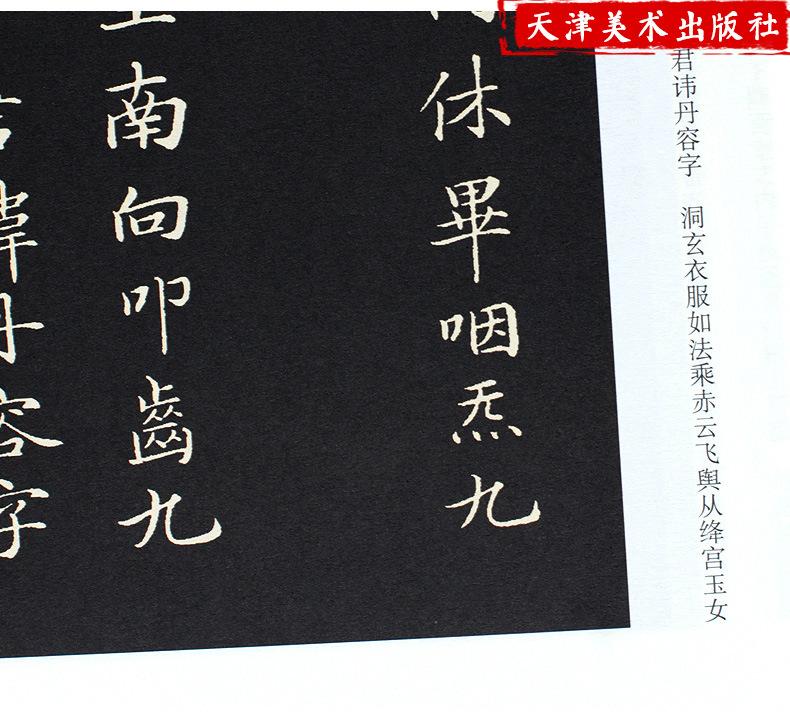 天津美术出版社
君讳丹容字 洞玄衣服如法乘赤云飞舆从绛宫玉女
休畢咽炁九
南向叩齒九
丹容字